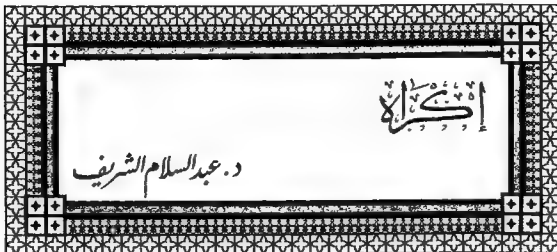 إكراه
د. عبدالسلام الشريف